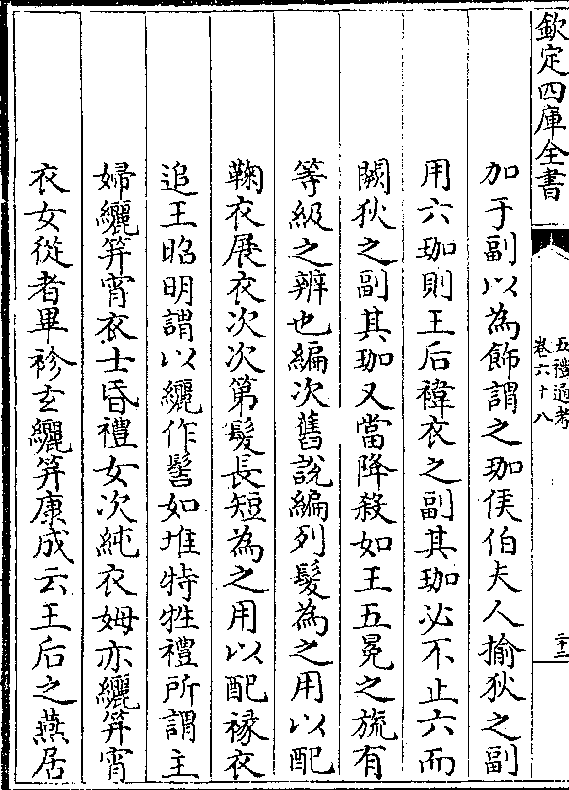 欽定四庫全書
五禮通考
卷六十八
三十二
加于副以為飾謂之珈侯伯夫人揄狄之副
用六珈則王后褘衣之副其珈必不止六而
闕狄之副其珈又當降殺如王五冕之旒有
等級之辨也編次舊說編列髮為之用以配
鞠衣展衣次次第髮長短為之用以配褖衣
追王昭明謂以纚作髻如堆特牲禮所謂主
婦纚筓宵衣士昏禮女次純衣姆亦纚筓宵
衣女從者畢袗玄纚筓康成云王后之燕居